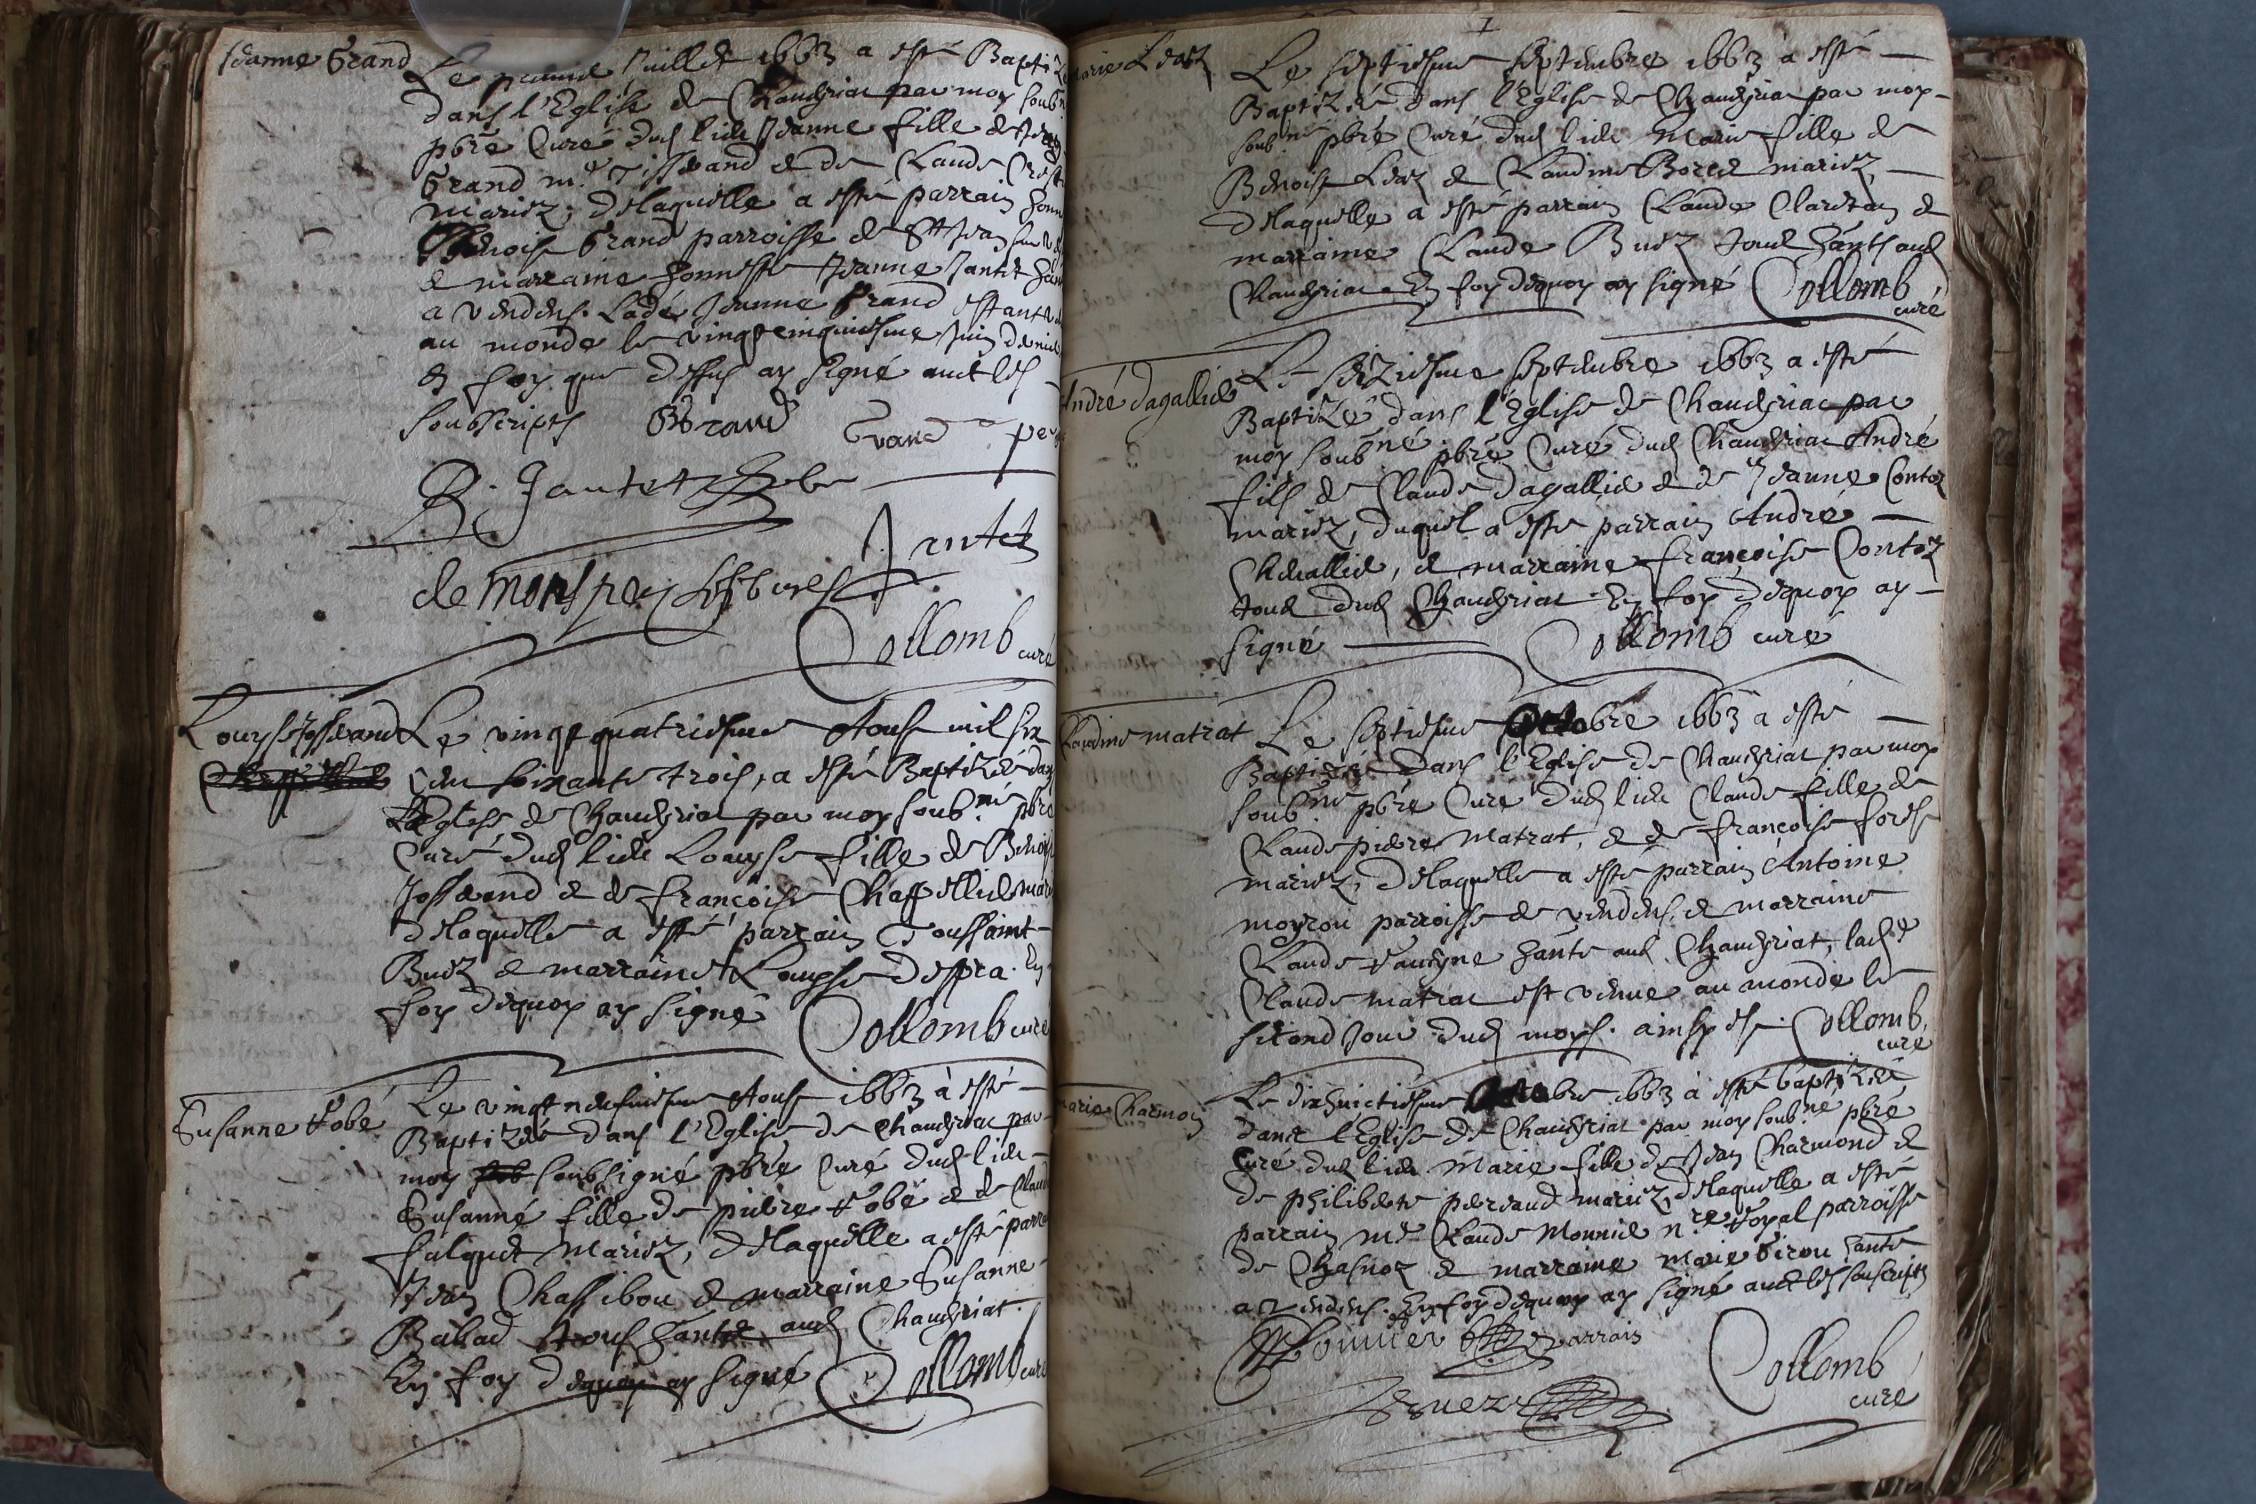 Jeanne Grand
Le premier Juillet 1663 a esté Baptizé
dans l'Eglise de Chaveyriat par moy soub.né
pbre Curé dud lieu Jeanne fille de Jean
Grand m.e Tisserand et de Claude
mariez, delaquelle a esté parrain
Benoist Grand parroisse de St Jean sur
et marraine honneste Jeanne Jantet
a vendens. Lade Jeanne Grand estant
au monde le vingtcinquiesme Juin dernier
En foy que dessus ay signé avec les
soubscripts BGrand Grand
B. Jantet
Jantet
de monspey
Collomb curé
Louyse Josserand
Le vingt quatriesme Aoust mil six
cens soixante trois, a esté Baptizée dans
L'Eglise de Chaveyriat par moy soub.né pbre
Curé dud lieu Louyse fille de Benoist
Josserand et de françoise Chappellier
delaquelle a esté parrain Toussaint
Buez et marraine Louyse despra. En
foy dequoy ay signé
Collomb curé
Susanne Robé
Le vingt neufiesme Aoust 1663 à esté
Baptizée dans l'Eglise de Chaveyriat par
moy soubsigné pbre Curé dud lieu
Susanne fille de pierre Robé et de Claude
falquet mariez, delaquelle a esté parrain
Jean Chassibou et marraine Susanne
Babad tous hants aud Chaveyriat.
En foy dequoy ay signé Collomb curé
1
Marie Leaz
Le septiesme septembre 1663 à esté
Baptizée dans l'Eglise de Chaveyriat par moy
soub.né pbre Curé dud lieu Marie fille de
Benoist Leaz et Claudine Borcel mariez,
delaquelle a esté parrain Claude Claretan et
marraine Claude Buez tous hants aud
Chaveyriat En foy dequoy ay signé Collomb
curé
André dagallier
Le seiziesme septembre 1663 a esté
Baptizé dans l'Eglise de Chaveyriat par
moy soub.né pbre Curé dud Chaveyriat André
fils de Claude dagallier et de Jeanne Contoz
mariez, duquel a esté parrain André
Chevallier, et marraine françoise Contoz
tous dud Chaveyriat En foy dequoy ay
signé Collomb curé
Claudine matrat
Le septiesme Octobre 1663 à esté
Baptizée dans l'Eglise de Chaveyriat par moy
soub.né pbre Curé dud lieu Claude fille de
Claude pierre Matrat, et de françoise forest
mariez, delaquelle a esté parrain Antoine
moyrou parroisse de vendens, et marraine
Claude hante aud Chaveyriat, lad.e
Claude matrat est venue au monde le
second Jour dud moys. ainsy est. Collomb
curé
Marie Charmon
Le dixhuictiesme Octobre 1663 à esté baptizée
dans l'Eglise de Chaveyriat par moy soub.né pbre
Curé dud lieu Marie fille de Jean Charmond et
de philiberte perraud mariez, delaquelle a esté
parrain m.e Claude Monnier n.re Royal parroisse
de Chasnoz et marraine marie Girou hante
a vendens. En foy dequoy ay signé avec les souscripts
Monnier parrain
Collomb
curé